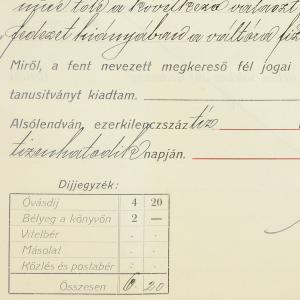 mire tőle a következő választ
fedezet hiányában a váltóra fiz
Miről, a fent nevezett megkereső fél jogai
tanusitványt kiadtam.
Alsólendván, ezerkilenczszáz tiz
tizenhatodik napján.
Díjjegyzék:
Óvásdíj 4 20
Bélyeg a könyvön 2 —
Vitelbér . .
Másolat . .
Közlés és postabér . .
Összesen 6 20